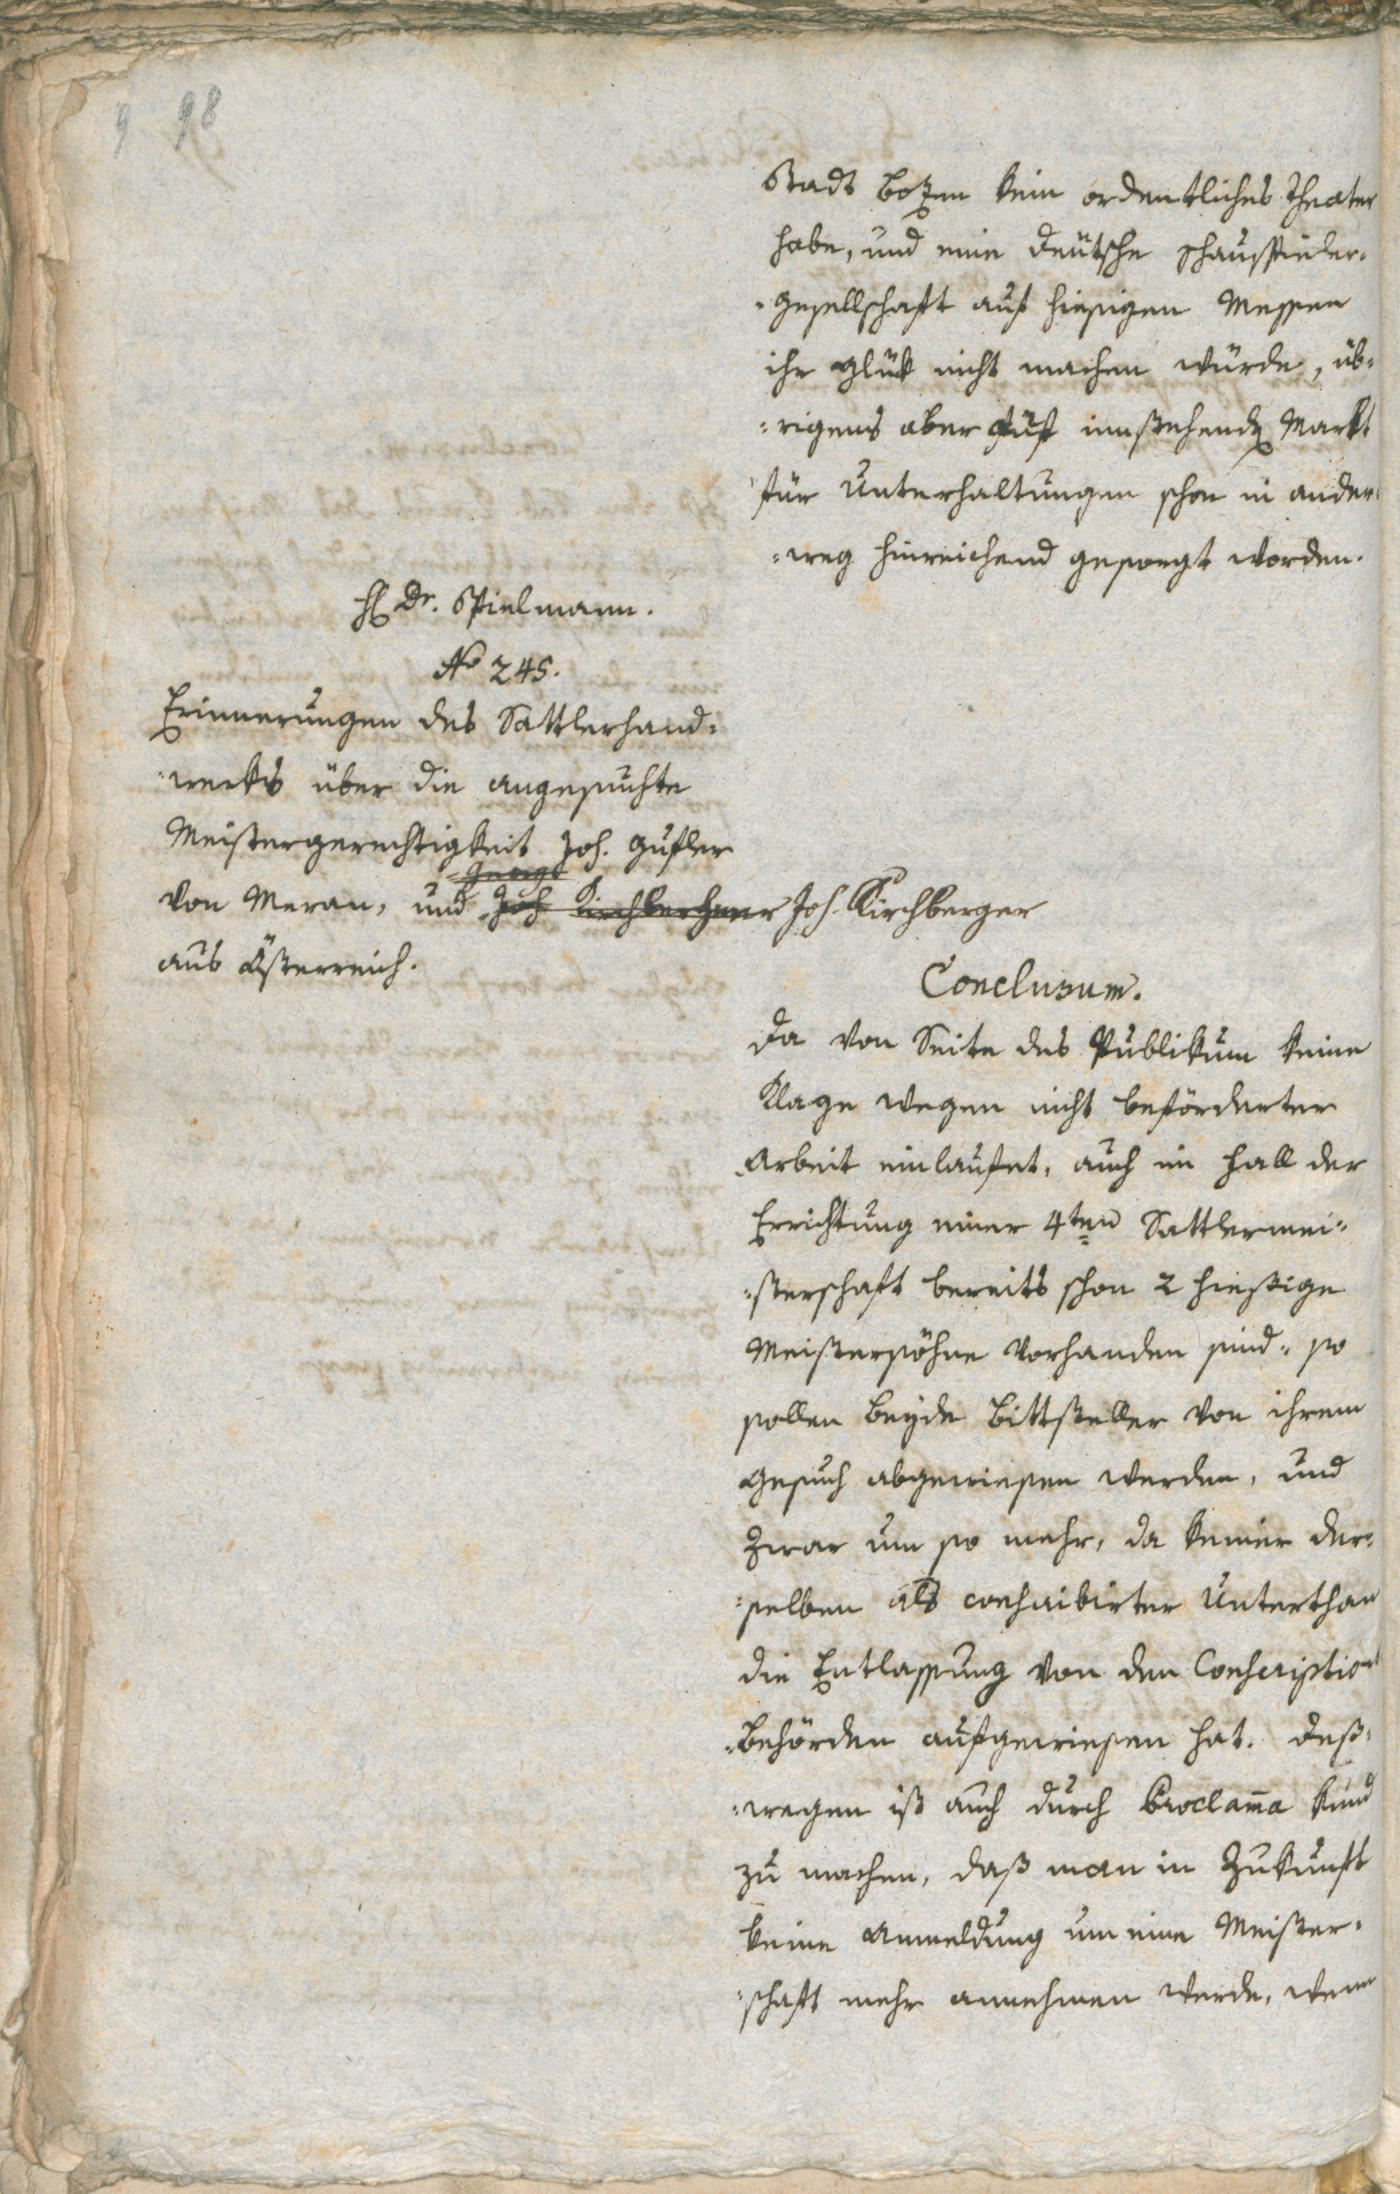 9 98
Stadt Botzen kein ordentliches Theater
habe, und eine deutsche Schauspieler-
-gesellschaft auf hiesigen Messen
ihr Glük nicht machen würde, üb-
-rigens aber auf einstehend Markt
für Unterhaltungen schon in ander-
-weg hinreichend gesorgt worden.
H Dr. Spielmann.
No 245.
Erinnerungen des Sattlerhand-
-werks über die angesuchte
Meistergerechtigkeit Joh. Gufler
von Meran, und Joh. Kirchberger
aus Österreich.
Conclusum.
Da von Seite des Publikum keine
Klage wegen nicht beförderter
Arbeit einlaufet, auch im Fall der
Errichtung einer 4ten Sattlermei-
-sterschaft bereits schon 2 hießige
Meistersöhne vorhanden sind, so
sollen beyde Bittsteller von ihrem
Gesuch abgewiesen werden, und
zwar um so mehr, da keiner der-
-selben als conscribirter Unterthan
die Entlassung von den Conscriptions
-behörden aufgewiesen hat. Deß-
-wegen ist auch durch Proclama kund
zu machen, daß man in Zukunft
keine Anmeldung um eine Meister-
-schaft mehr annehmen werde, wenn